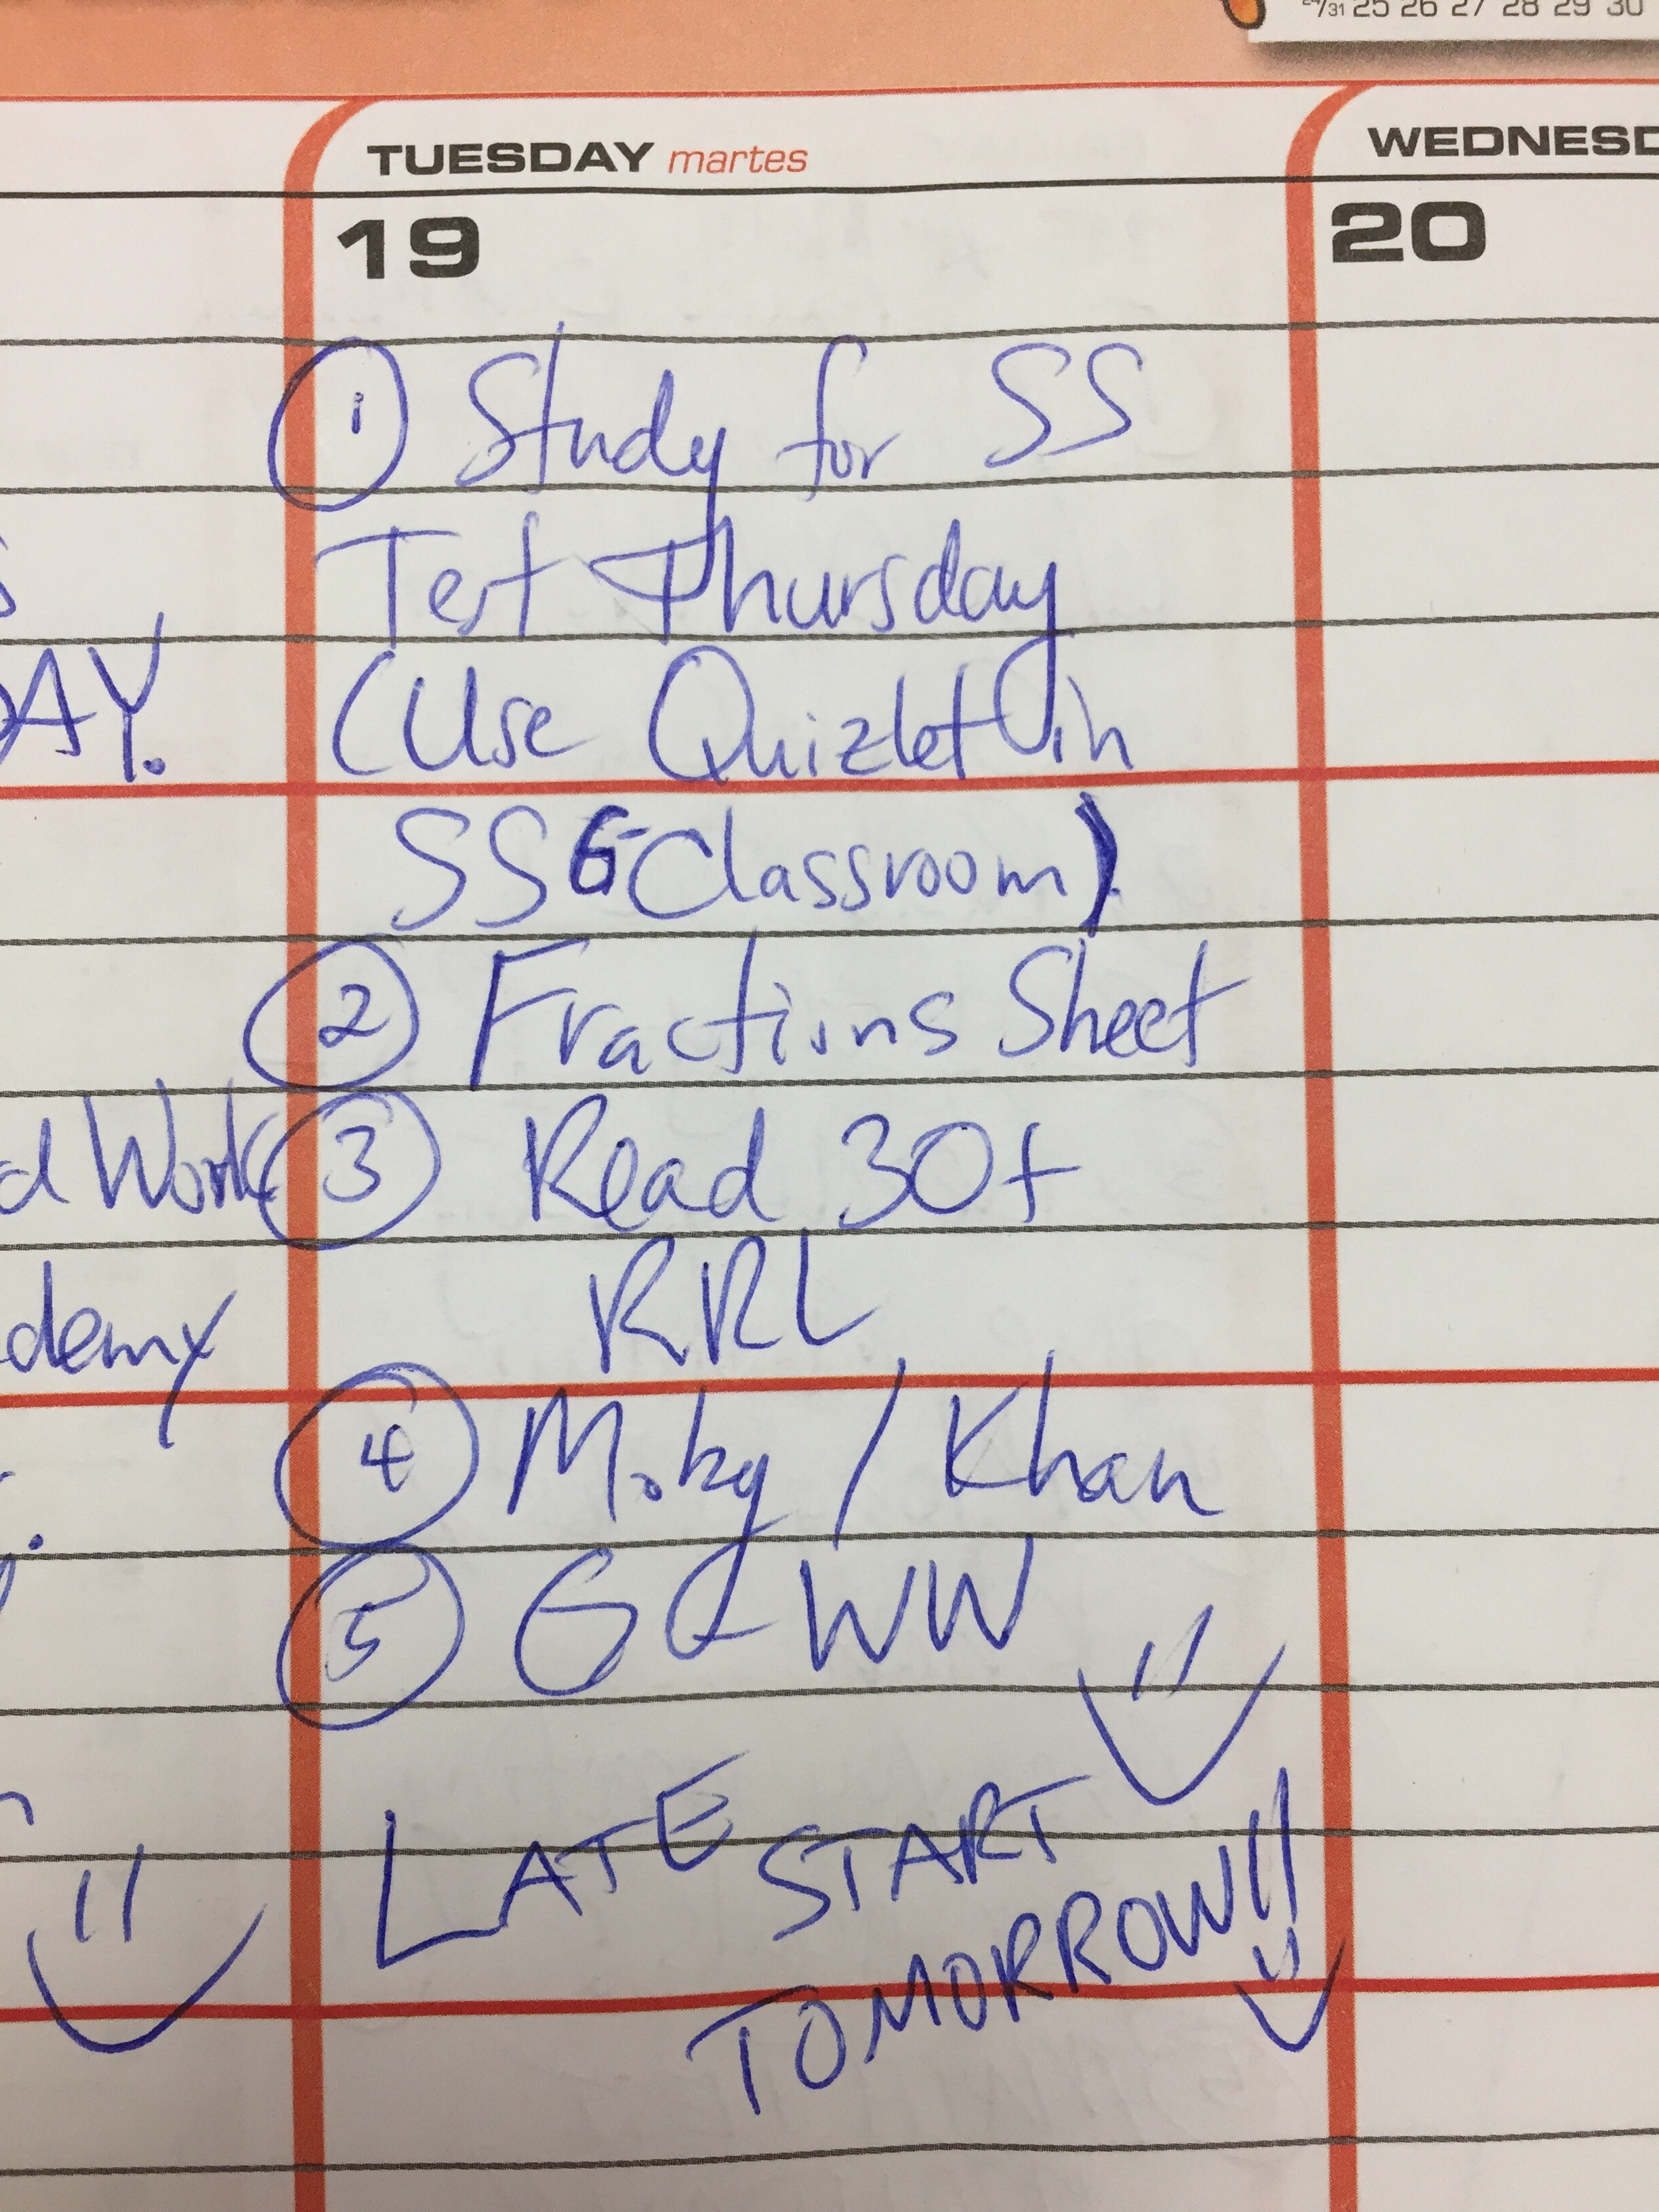 24/31 25 26 27 28 29 30
TUESDAY martes
WEDNESD
19
20
① Study for SS
Test Thursday
(Use Quizlet in
SS G Classroom)
② Fractions Sheet
③ Read 30+
RRL
④ Moby / Khan
⑤ GC WW
LATE START
TOMORROW!!
AY.
d Work
demy